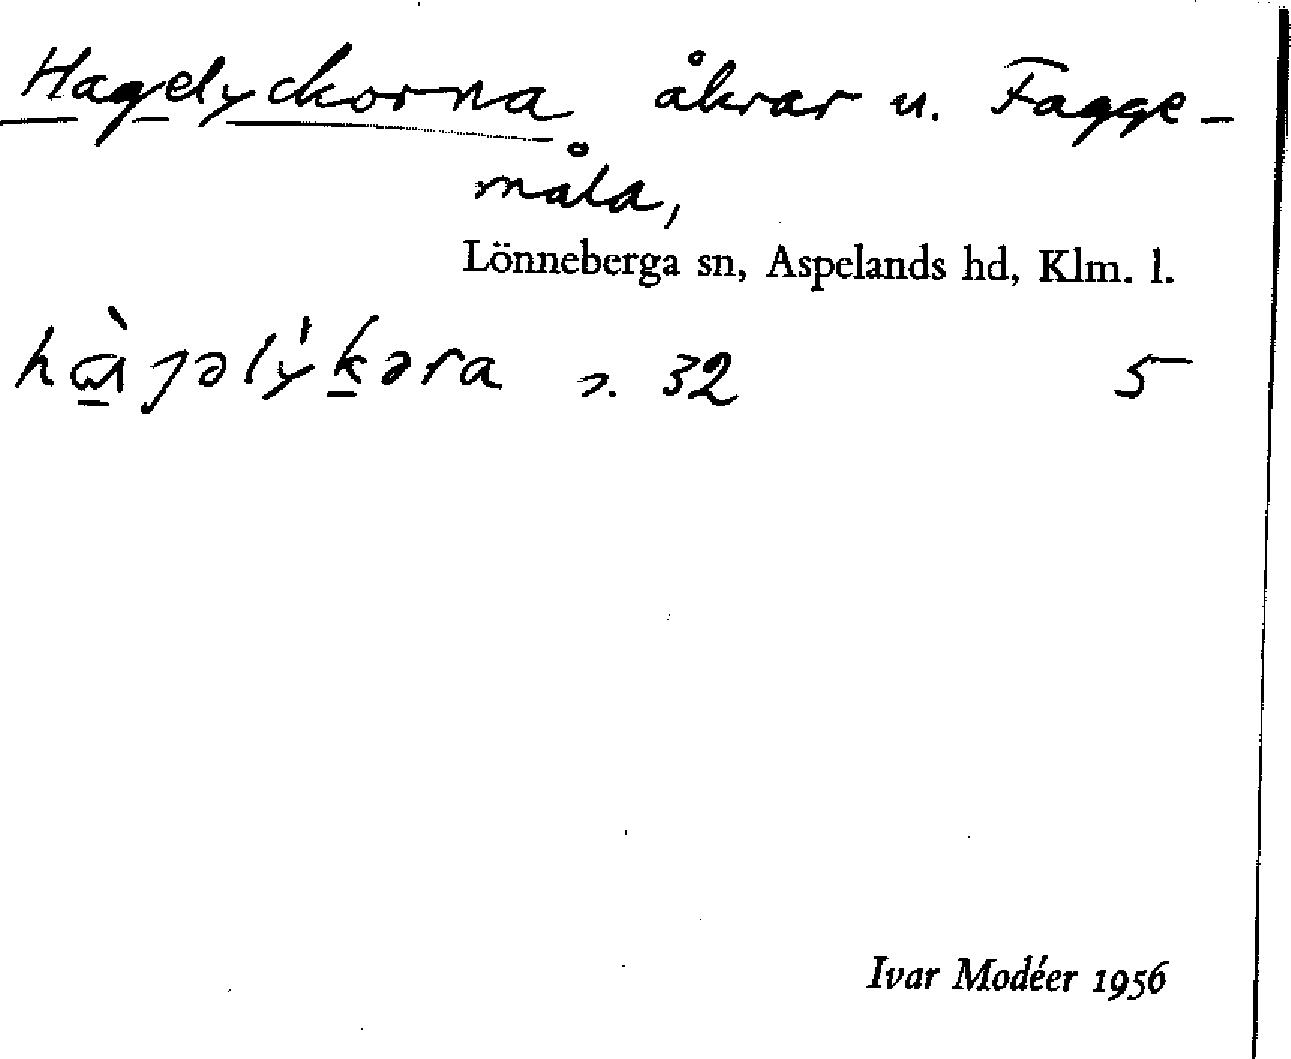 Hagelyckorna åkrar u. Fagge-
måla,
Lönneberga sn, Aspelands hd, Klm. l.
32 5
Ivar Modéer 1956